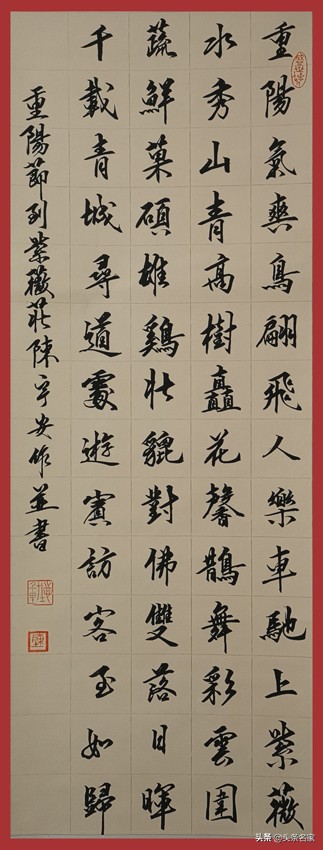 重陽氣爽鳥翩飛人樂車馳上紫薇
水秀山青高樹矗花馨鵲舞彩雲圍
蔬鮮菓碩雄鷄壯貔對佛雙落日暉
千載青城尋道處遊賓訪客至如歸
重陽節到紫薇莊陳宇安作並書
头条 @头条名家